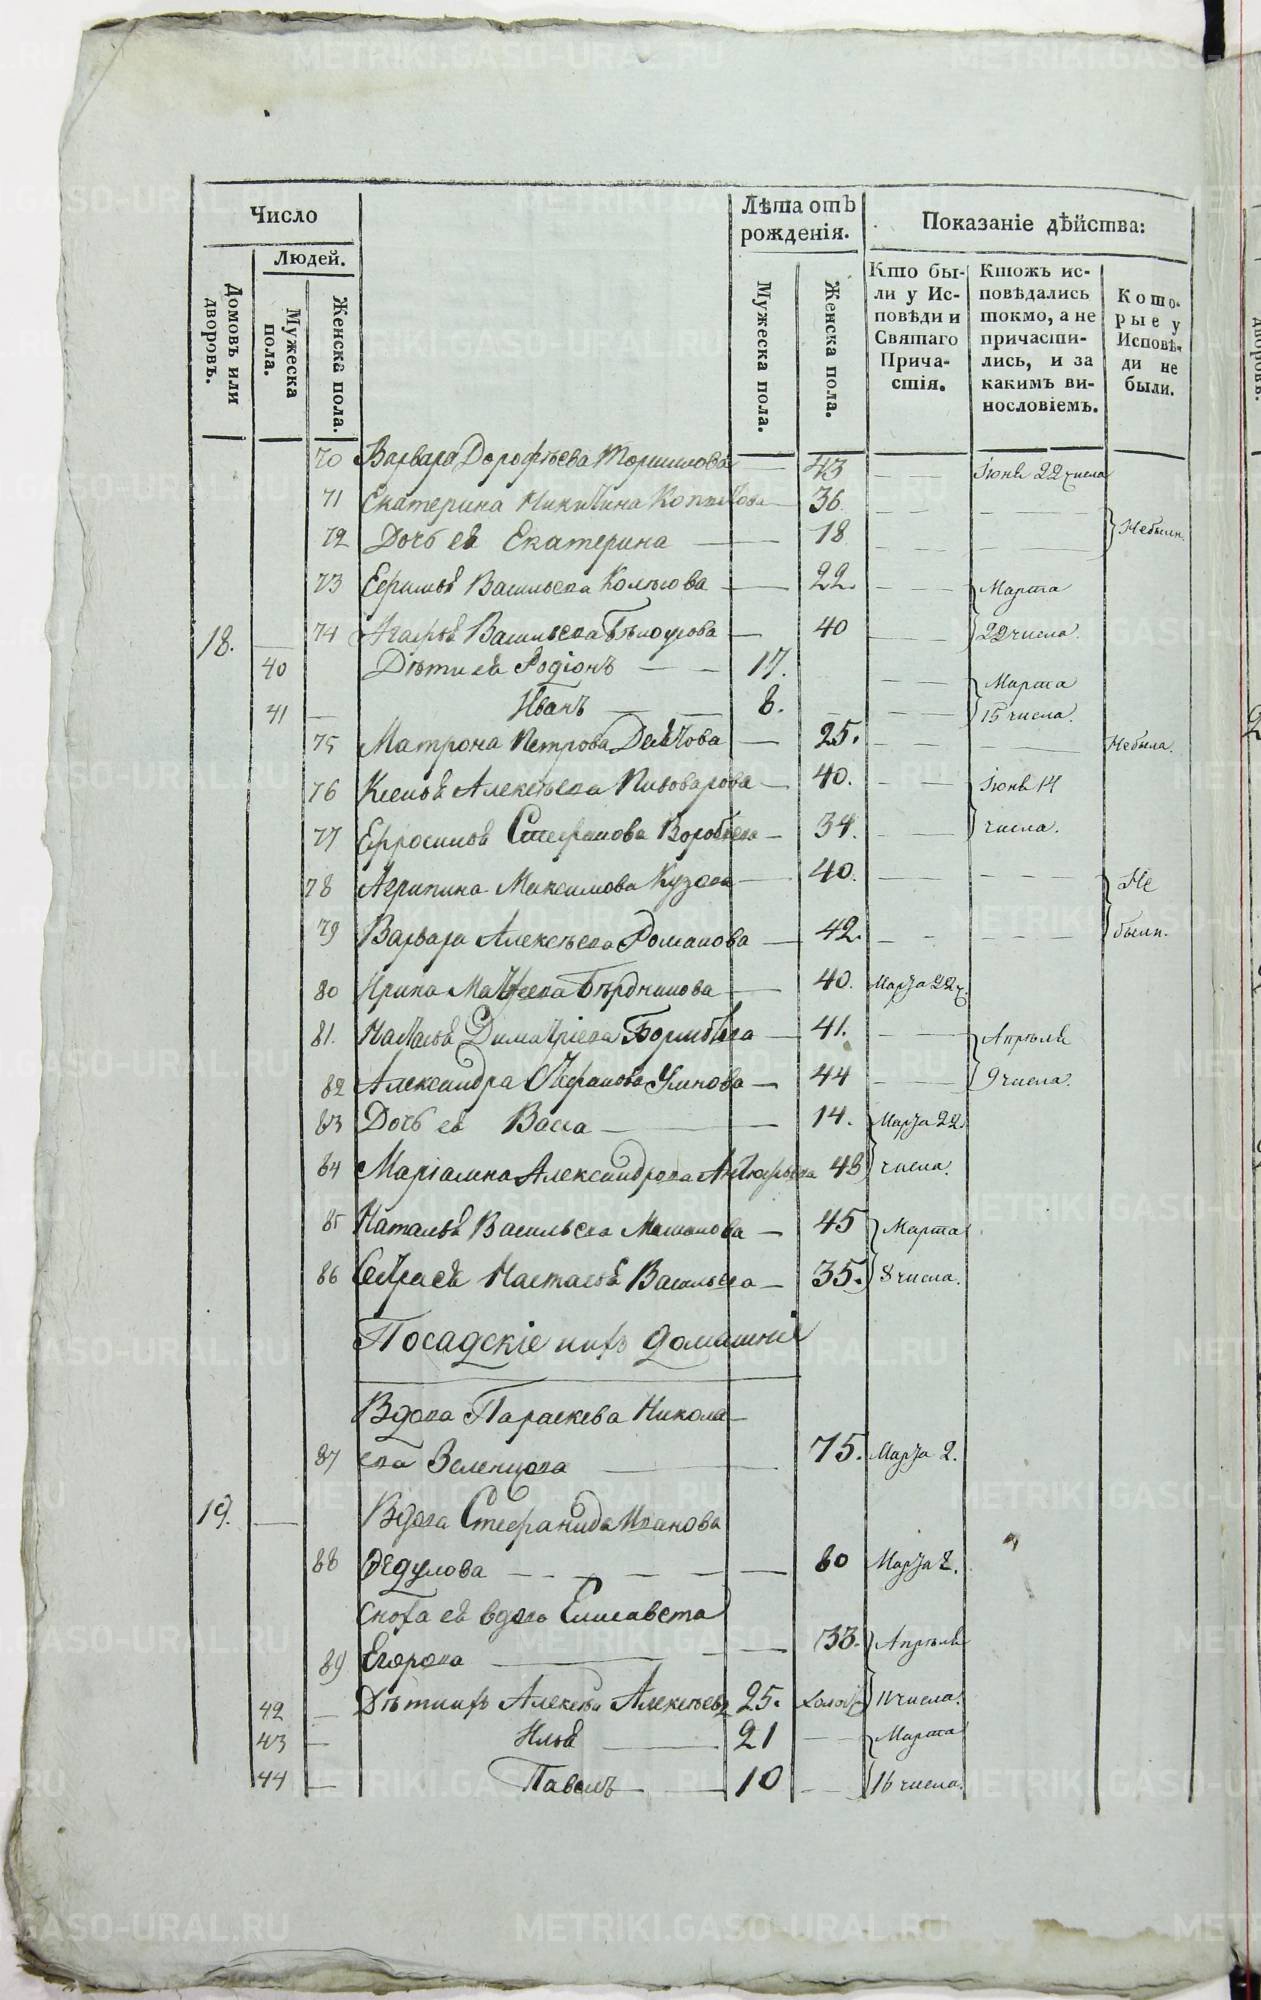 Число
Людей.
Домовъ или дворовъ.
Мужеска пола.
Женска пола.
Лѣта отъ
рожденія.
Мужеска пола.
Женска пола.
Показаніе дѣйства:
Кто бы-
ли у Ис-
повѣди и
Святаго
Прича-
стія.
Ктожъ ис-
повѣдались
токмо, а не
причасти-
лись, и за
какимъ ви-
нословіемъ.
Кото-
рые у
Исповѣ-
ди не
были.
70 Варвара Дорофѣева 43 Іюня 22 числа
71 Екатерина Никитина Копылова 36
72 Дочь ея Екатерина 18 Небыли.
73 Васильева 22. Марта
18. 74 Агафья Васильева Бѣлоусова 40 22 числа.
40 Дѣти ея Родіонъ 17. Марта
41 Иванъ 8. 15 числа.
75 Матрона Петрова 25. Небыла.
76 Ксенья Алексѣева Пивоварова 40. Іюня 14
77 Ефросинья Стефанова Воробьева 34. числа.
78 Агрипина Максимова 40. Не
79 Варвара Алексѣева Романова 42. были.
80 Ирина Матѳеева Бердникова 40. Марта 22
81. Наталья Димитріева 41. Апрѣля
82 Александра Стефанова Умнова 44 9 числа.
83 Дочь ея Васса 14. Марта 22
84 Маріамна Александрова 48 числа.
85 Наталья Васильева 45 Марта
86 Сестра ея Настасья Васильева 35. 8 числа.
Посадскіе ихъ домашніе
Вдова Параскева Никола-
87 ева Зеленцова 75. Марта 2.
19. Вдова Стефанида Иванова
88 Ѳедулова 60 Марта 2.
Сноха ея вдова Елисавета
89 Егорова 33. Апрѣля
42 Дѣти ихъ Алексѣй Алексѣевъ 25. 11 числа.
43 Илья 21 Марта
44 Павелъ 10 16 числа.
METRIKI.GASO-URAL.RU